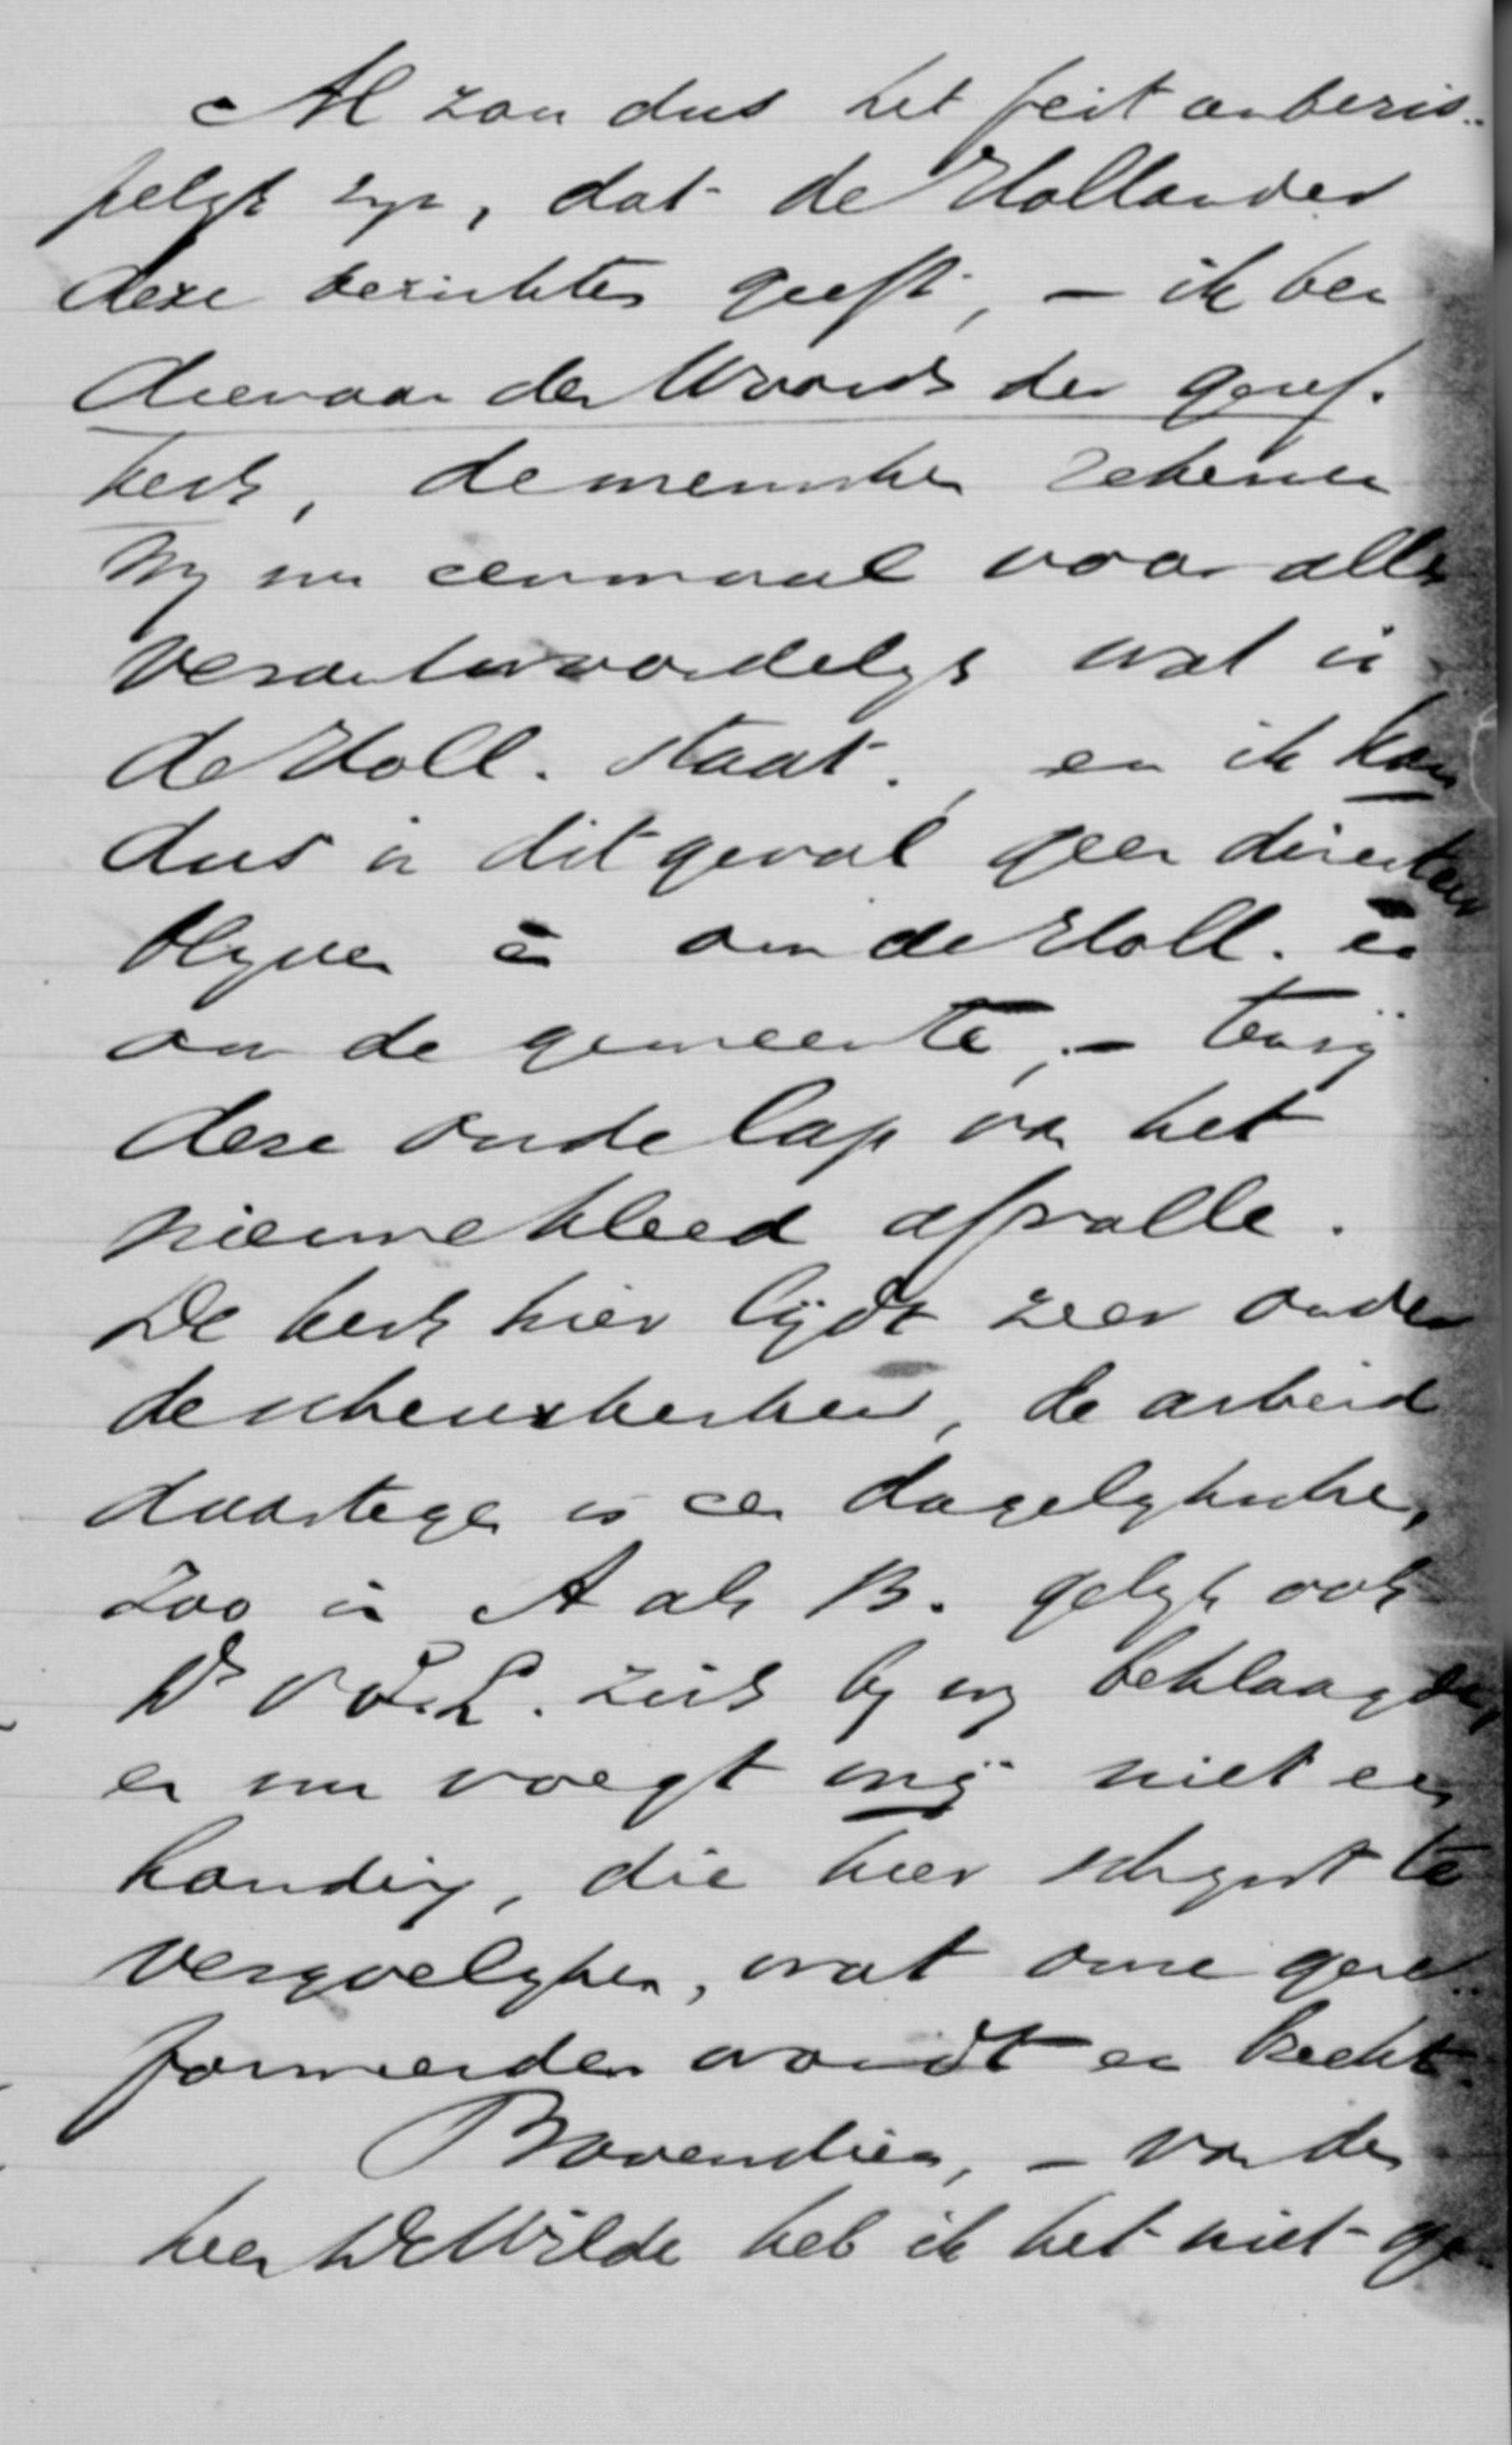 Al zou dus het feit onberis-
pelyk zyn, dat de Hollander
deze berichten geeft, – ik ben
dienaar des Woords der geref.
kerk, de menschen rekenen
my nu eenmaal voor alles
verantwoordelyk wat in
de Holl. staat, en ik kan
dus in dit geval geen directeur
blyven èn van de Holl. èn
van de gemeente, – tenzij
deze oude lap van het
nieuwe kleed afvalle.
De kerk hier lijdt zeer onder
de scheurkerken, de arbeid
daartegen is een dagelyksche,
zoo in A als B. gelyk ook
Ds v d. L. zich by my beklaagde,
en nu voegt mij niet een
houding, die hier schynt te
vergoelyken, wat onze geref-
formeerden wondt en krenkt.
Bovendien, – van den
heer De Wilde heb ik het niet ge-